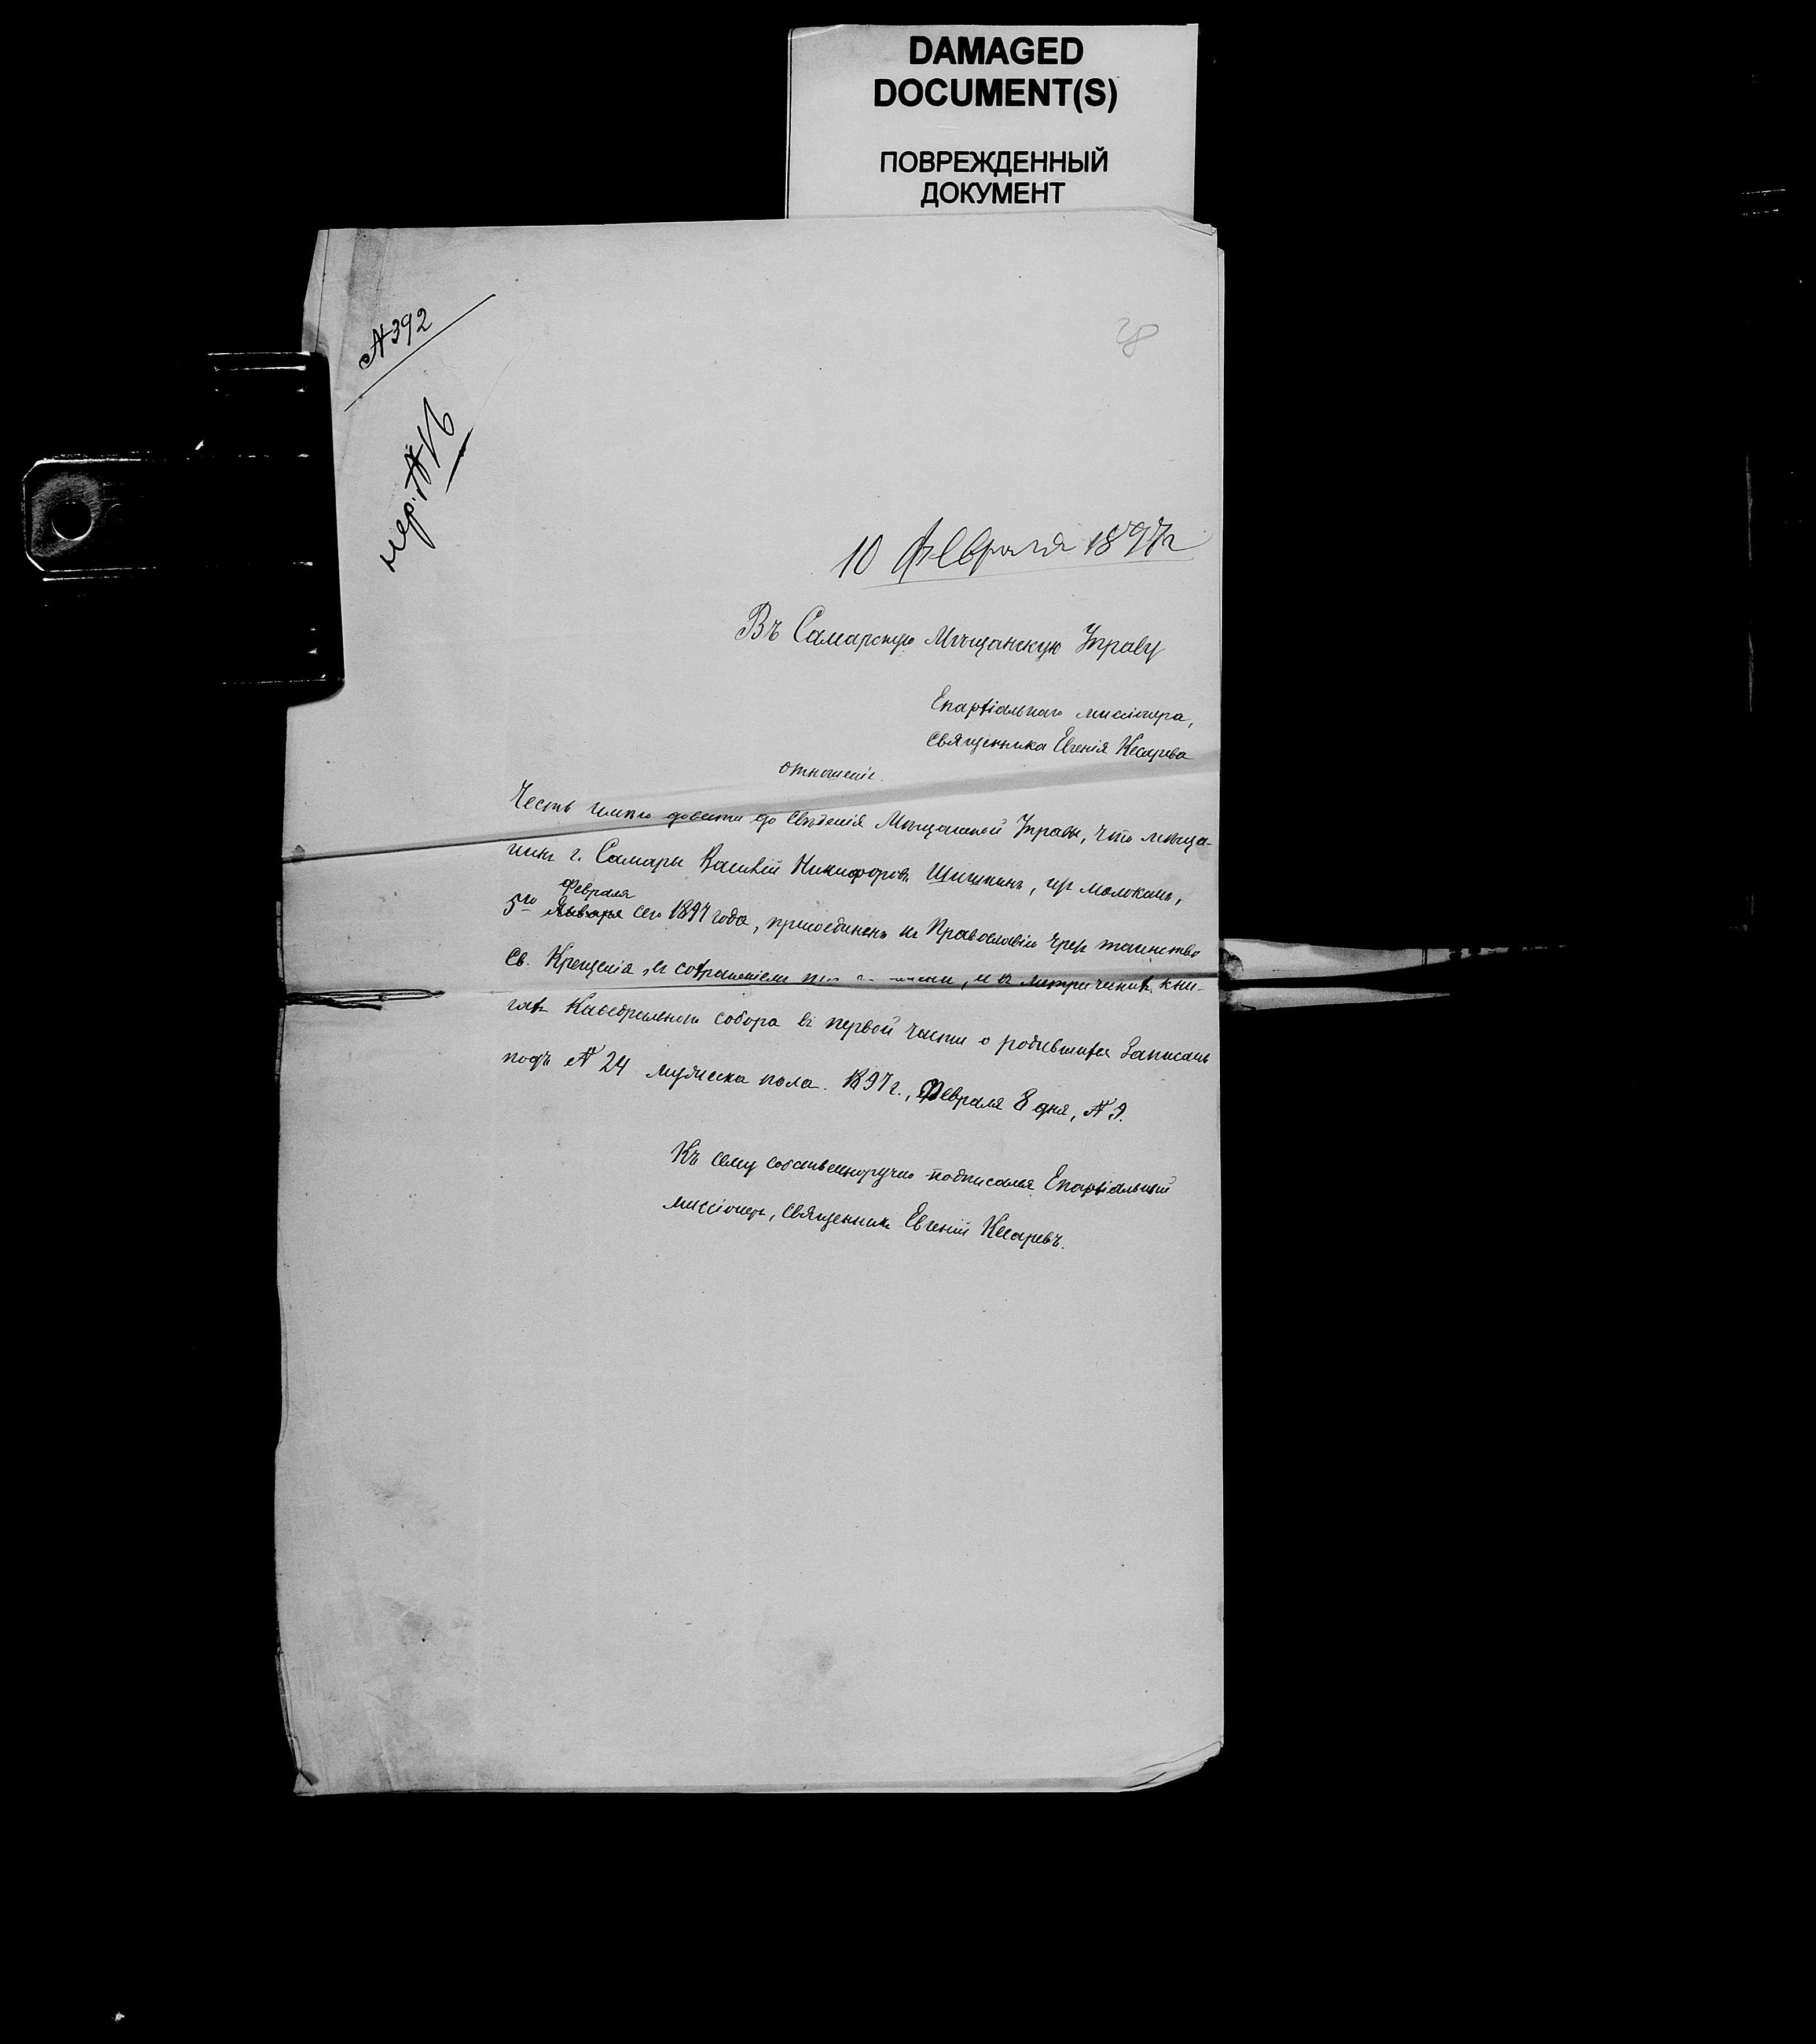 DAMAGED
DOCUMENT(S)
ПОВРЕЖДЕННЫЙ
ДОКУМЕНТ
№ 392
28
10 Февраля 1897 г
Въ Самарскую Мѣщанскую Управу
Епархіальнаго миссіонера,
Священника Евгенія Кесарева
отношеніе.
Честь имѣю довести до свѣденія Мѣщанской Управы, что мѣща-
нинъ г. Самары Василій Никифоровъ Шишкинъ, изъ молоканъ,
Февраля
5го Января сего 1897 года, присоединенъ къ Православію чрезъ таинство
Св. Крещенія, съ сохраненіемъ, и въ метрическихъ кни-
гахъ Каѳедральнаго собора въ первой части о родившихся записанъ
подъ № 24 мужеска пола. 1897 г., Февраля 8 дня, № 9.
Къ сему собственноручно подписался Епархіальный
миссіонеръ, Священникъ Евгеній Кесаревъ.